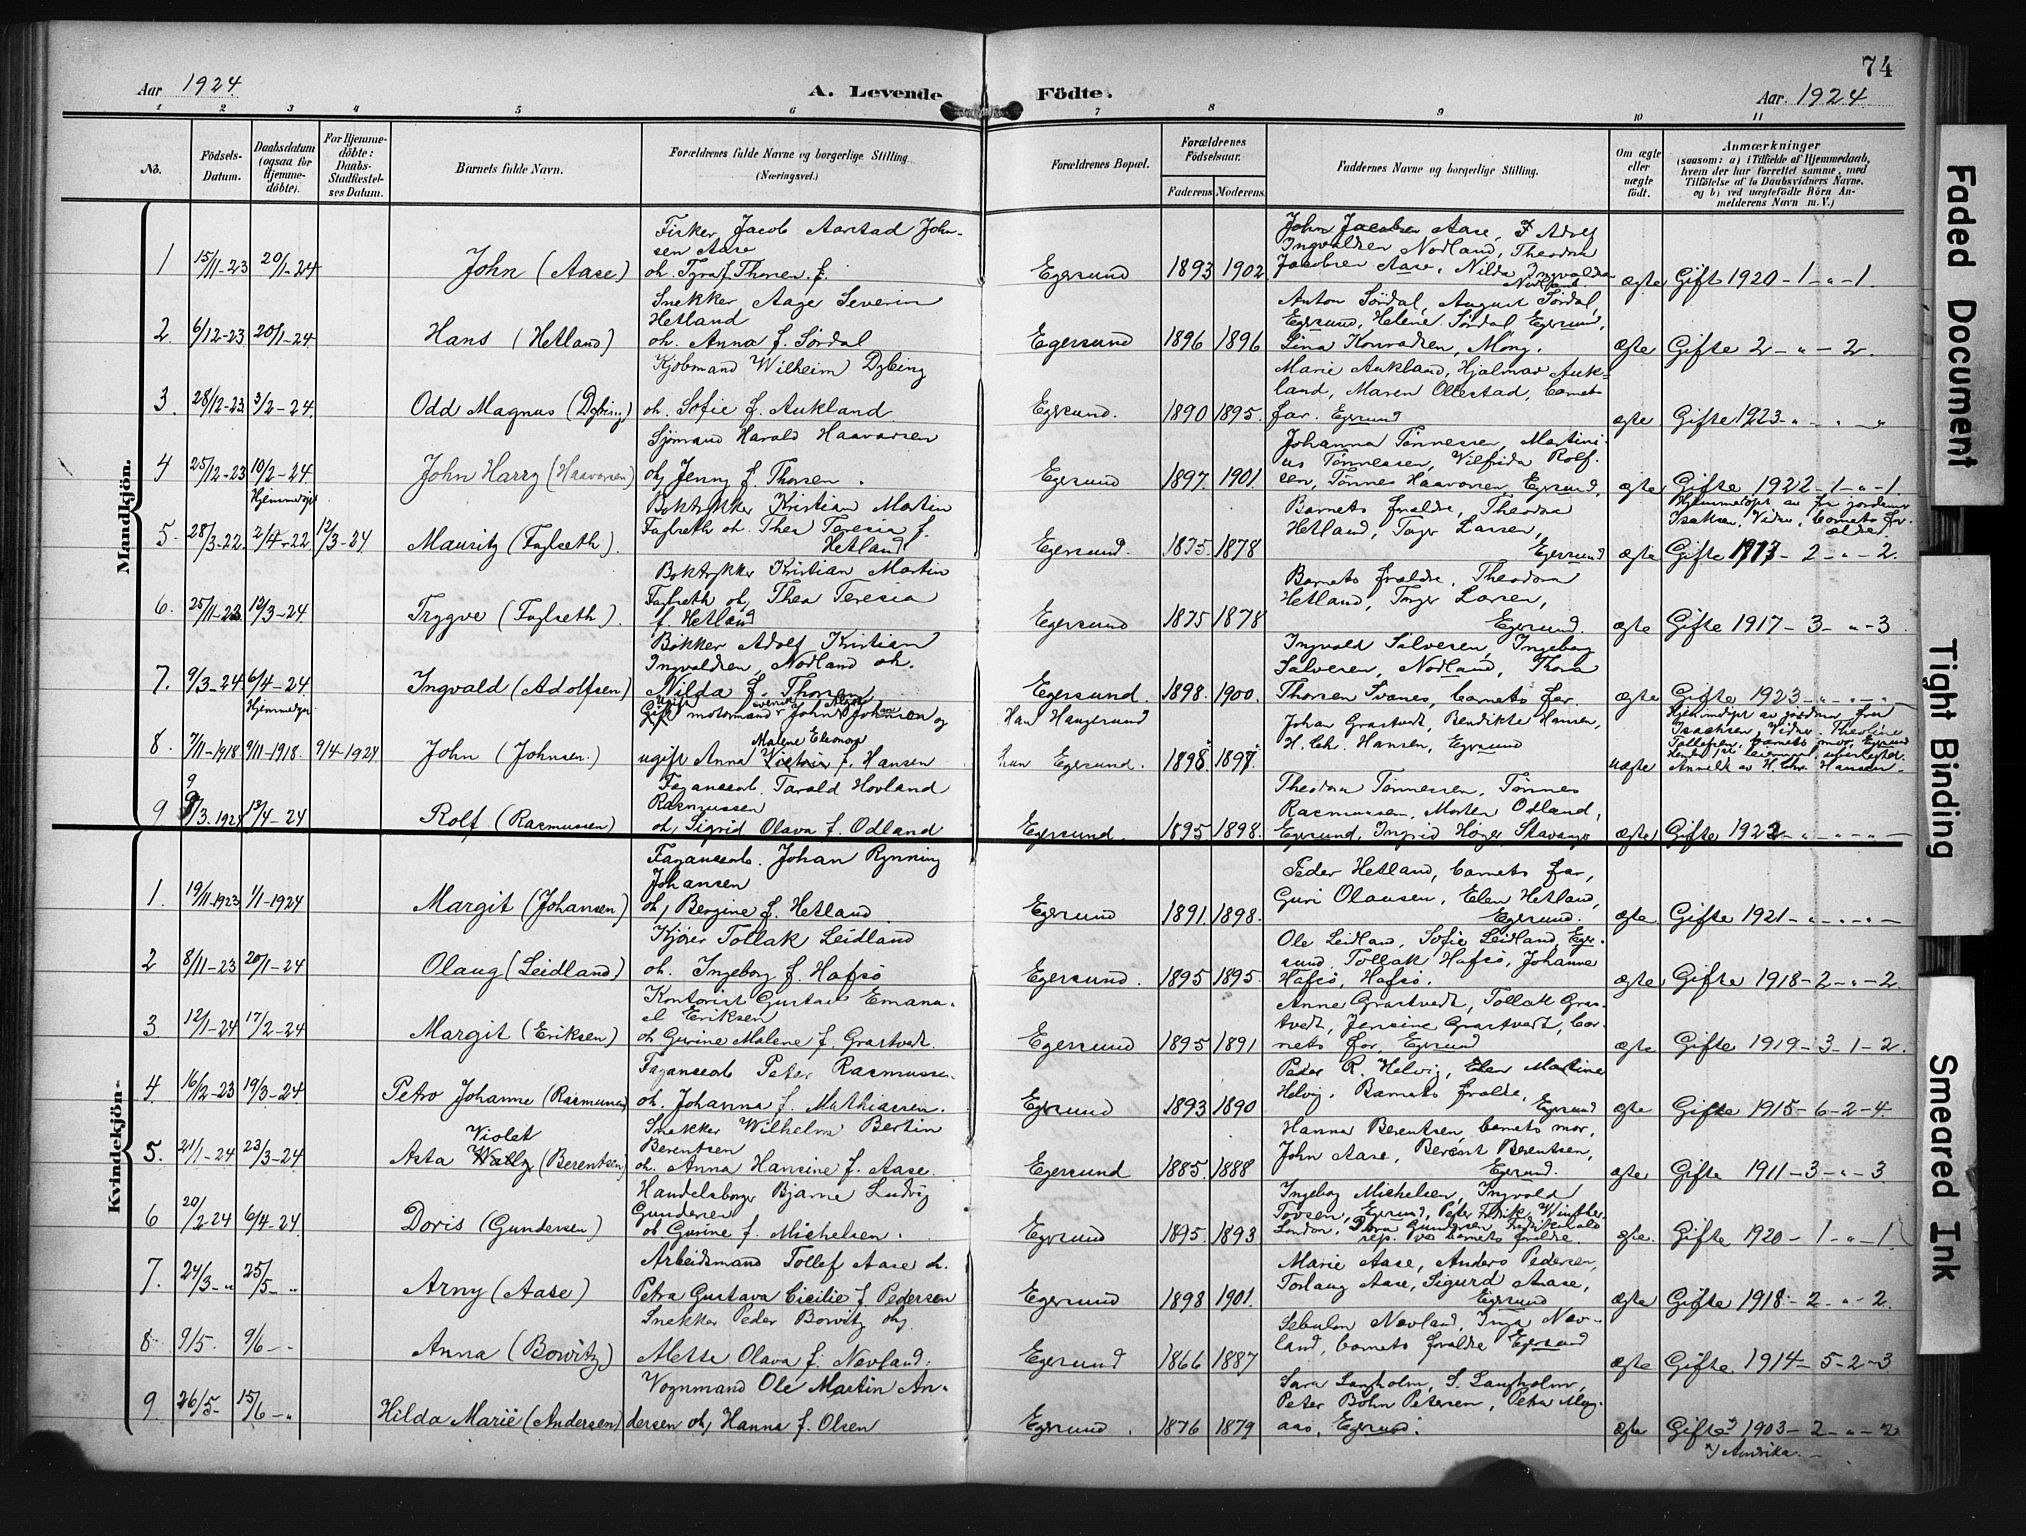 74
Aar 1924
A. Levende
Födte.
Aar 1924
1 2 3 4 5 6 7 8 9 10 11
No.
Födsels-
Datum.
Daabsdatum
(ogsaa for
Hjemme-
döbte).
For Hjemme-
döbte:
Daabs-
Stadfæstel-
ses Datum.
Barnets fulde Navn.
Forældrenes fulde Navne og borgerlige Stilling.
(Næringsvei.)
Forældrenes Bopæl.
Forældrenes
Födselsaar.
Faderens Moderens
Faddernes Navne og borgerlige Stilling.
Om ægte
eller
uægte
födt.
Anmærkninger
(saasom: a) i Tilfælde af Hjemmedaab,
hvem der har forrettet samme, med
Tilföielse af to Daabsvidners Navne,
og b) ved uægtefödte Börn An-
melderens Navn m. V.)
Mandkjön.
1 15/11-23 20/1-24 John (Aase)
Fisker Jacob Aarstad John-
sen Aase
Egersund 1893 1902
John Jacobsen Aase, Adolf
Ingvaldsen Nodland, Theodora
Jacobsen Aase, Nilda Ingvaldsen
Nodland
ægte Gifte 1920-1-"-1.
2. 6/12-23 20/1-24 Hans (Hetland)
Snekker Aage Severin
Hetland
oh. Anna f. Sørdal
Egersund 1896 1896
Anton Sørdal, August Sørdal,
Egersund, Helene Sørdal Egersund,
Lina Konradsen, Mong.
ægte Gifte 2-"-2.
3. 28/12-23 3/2-24 Odd Magnus (Dybing)
Kjøbmand Wilhelm Dybing
oh. Sofie f. Aukland
Egersund. 1890 1895
Marie Aukland, Hjalmar Auk-
land, Maren Ollestad, barnets
far. Egersund
ægte Gifte 1923-"-"-"
4 25/12-23 10/2-24 John Harry (Haavorsen)
Sjømand Harald Haavorsen
oh, Jenny f. Thorsen
Egersund 1897 1901
Johanna Tønnessen, Martini-
us Tønnessen, Wilfrida Rolf-
sen, Tønnes Haavorsen Egersund,
ægte Gifte 1922-1-"-1.
5. 28/3-22 Hjemmedøpt 2/4-22 12/3-24 Mauritz (Faylseth).
Boktrykker Kristian Martin
Faylseth oh. Thea Teresia f.
Hetland
Egersund. 1875 1878
Barnets forældre, Theodora
Hetland, Inger Larsen,
Egersund
Hjemmedøpt av fru jordemor
Isaksen, Vidner, barnets for-
ældre.
ægte Gifte 1917-2-"-2.
6. 25/11-23 12/3-24 Trygve (Faylseth).
Boktrykker Kristian Martin
Faylseth oh, Thea Teresia
f. Hetland
Egersund 1875 1878
Barnets forældre, Theodora
Hetland, Inger Larsen,
Egersund.
ægte Gifte 1917-3-"-3
7. 9/3-24 6/4-24 Ingvald (Adolfsen)
Bøkker Adolf Kristian
Ingvaldsen Nodland oh.
Nilda f. Thorsen
Egersund. 1898 1900.
Ingvald Salvesen, Ingeborg
Salvesen, Nodland, Thora
Thorsen Svanes, barnets far.
ægte Gifte 1923-"-"-"
8. 7/11-1918 Hjemmedøpt 9/11-1918. 9/4-1924 John (Johnsen)
motormand John Johansen og
Malene Eleonora
ugift Anna f. Hansen
Han Haugesund
hun Egersund. 1898 1897
Johan Grastvedt, Bendikte Hansen,
H. Chr. Hansen, Egersund
Hjemmedøpt av jordmor fru
Isachsen, Vidner Theoline
Tollefsen, barnets mor, Egersund
uægte Anmeldt av H. Chr. Hansen
9 9/3-1924 13/4-24 Rolf (Rasmussen)
Fayansearb. Tarald Hovland
Rasmussen
oh, Sigrid Olava f. Odland
Egersund. 1895 1898.
Theodora Tønnessen, Tønnes
Rasmussen, Morten Odland,
Egersund, Ingrid Høyer Stavanger
ægte Gifte 1922-"-"-"
Kvindekjön.
1. 19/11-1923 1/1-1924 Margit (Johansen)
Fayansearb. Johan Rynning
Johansen
oh, Bergine f. Hetland
Egersund 1891 1898.
Peder Hetland, barnets far,
Guri Olausen, Elen Hetland,
Egersund.
ægte. Gifte 1921-"-"-"
2 8/11-23 20/1-24 Olaug (Leidland)
Kjører Tollak Leidland
oh. Ingeborg f. Hafsø
Egersund. 1895 1895
Ole Leidland, Sofie Leidland, Eger-
sund Tollak Hafsø, Johanne
Hafsø, Hafsø.
ægte Gifte 1918-2-"-2
3 12/1-24 17/2-24 Margit (Eriksen)
Kontorist Gustav Emanu-
el Eriksen
oh Gurine Malene f. Grastvedt.
Egersund 1895 1891
Anne Grastvedt, Tollak Gras-
tvedt, Jensine Grastvedt, bar-
nets far, Egersund
ægte Gifte 1919-3-1-2.
4. 16/12-23 19/3-24 Petro Johanne (Rasmussen)
Fayansearb Peter Rasmussen
oh. Johanna f. Mathiassen.
Egersund 1893 1890
Peder R. Helvig, Elen Martine
Helvig. Barnets forældre,
Egersund
ægte Gifte 1915-6-2-4
5. 21/1-24 23/3-24 Asta Violet Wally (Berentsen)
Snekker Wilhelm Bertin
Berentsen
oh. Anna Hansine f. Aase.
Egersund 1885 1888
Hanna Berentsen, barnets mor,
John Aase, Berent Berentsen,
Egersund.
ægte Gifte 1911-3-"-3
6 20/2-24 6/4-24 Doris (Gundersen)
Handelsborger Bjarne Ludvig
Gundersen
oh Gurine f. Michelsen.
Egersund 1895 1893
Ingeborg Michelsen, Ingvald
Tovsen, Egersund, Peter Fredrik Winther
London, Dora Gundersen, Fredrikshald
rep. ved barnets forældre.
ægte. Gifte 1920-1-"-1
7. 24/3-" 25/5-" Arny (Aase)
Arbeidsmand Tollef Aase oh.
Petra Gustava Cicilie f. Pedersen
Egersund 1898 1901.
Marie Aase, Anders Pedersen,
Torlaug Aase, Sigurd Aase,
Egersund
ægte Gifte 1918-2-"-2.
8. 9/5. 9/6-" Anna (Bowitz)
Snekker Peder Bowitz oh,
Alette Olava f. Nevland.
Egersund 1866 1887
Sebulon Nevland, Inga Nev-
land, barnets forældre Egersund
ægte Gifte 1914-5-2-3
9 26/5- 15/6-" Hilda Marie (Andersen)
Vognmand Ole Martin An-
dersen oh, Hanna f. Olsen
Egersund. 1876 1879
Sara Langholm, S. Langholm,
Peter Bøhn Petersen, Petra
Egersund.
ægte Gifte 1903-2-"-2
Amerika.
Faded Document
Tight Binding
Smeared Ink